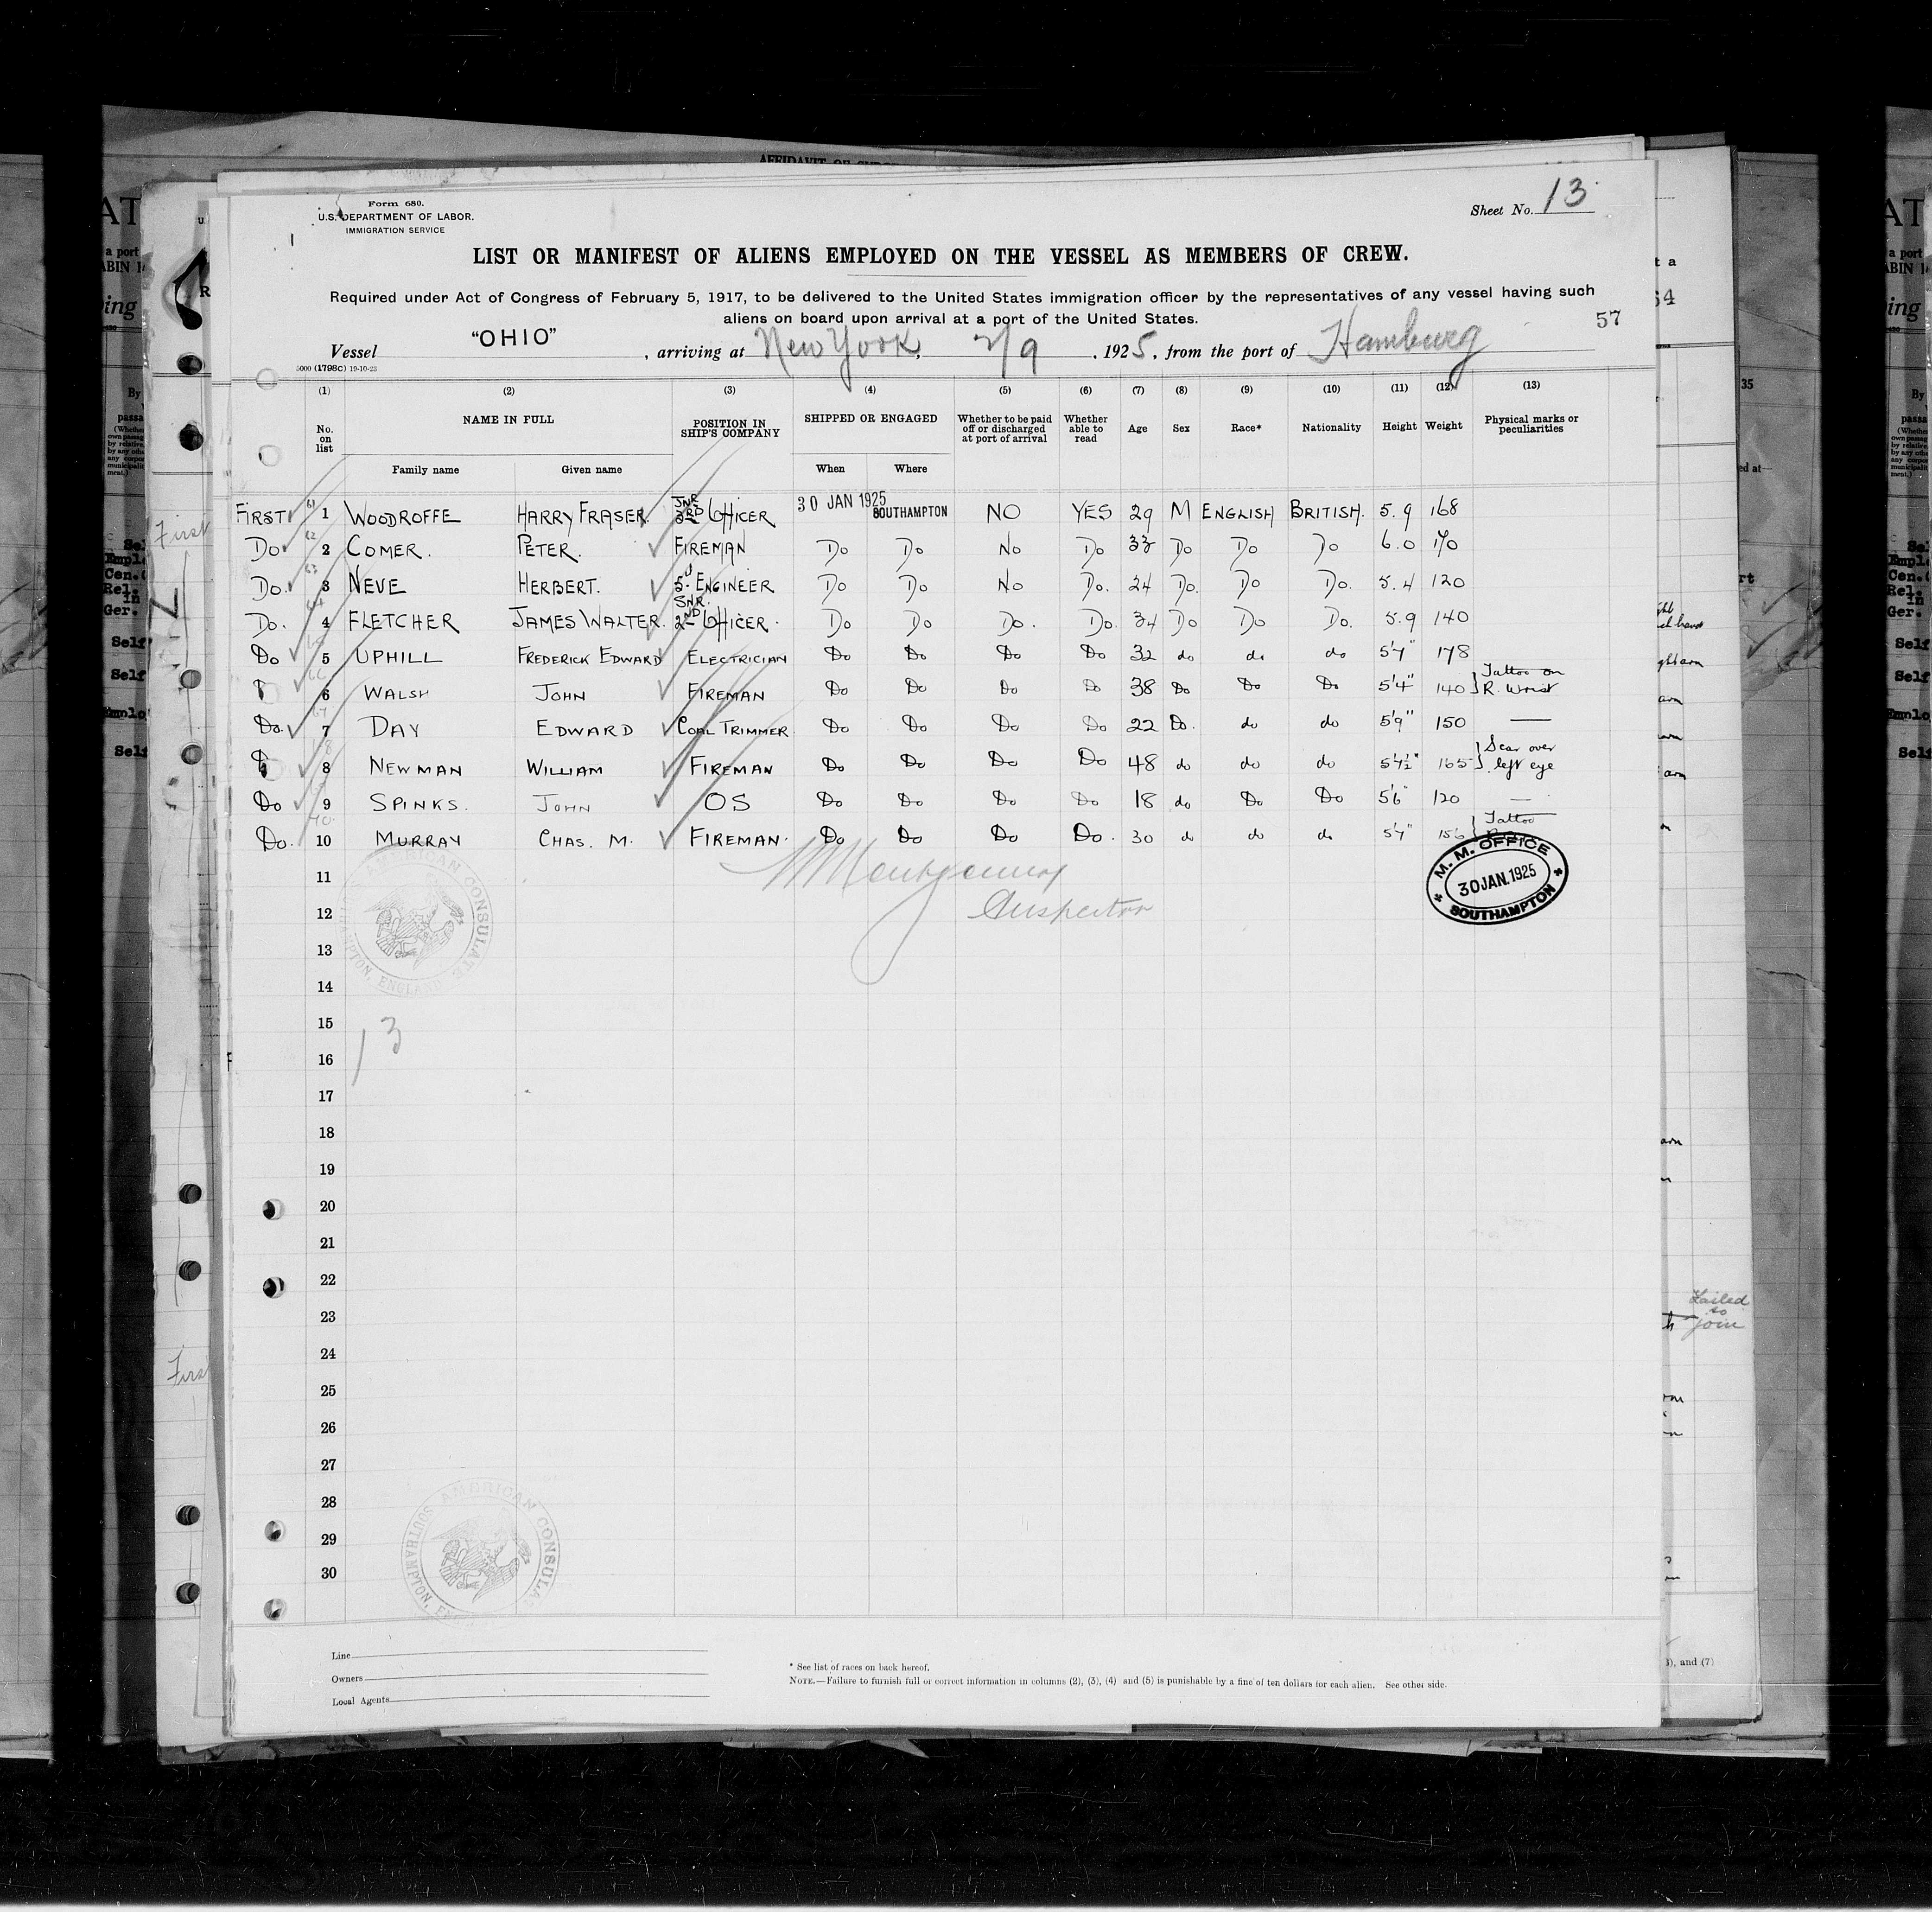 Form 680.
U.S. DEPARTMENT OF LABOR.
IMMIGRATION SERVICE
Sheet No. 13
LIST OR MANIFEST OF ALIENS EMPLOYED ON THE VESSEL AS MEMBERS OF CREW.
Required under Act of Congress of February 5, 1917, to be delivered to the United States immigration officer by the representatives of any vessel having such
aliens on board upon arrival at a port of the United States.
57
Vessel "OHIO", arriving at New York, 2/9, 1925, from the port of Hamburg
5000 (1798c) 19-10-23
(1) (2) (3) (4) (5) (6) (7) (8) (9) (10) (11) (12) (13)
No. on list NAME IN FULL POSITION IN SHIP'S COMPANY SHIPPED OR ENGAGED Whether to be paid off or discharged at port of arrival Whether able to read Age Sex Race* Nationality Height Weight Physical marks or peculiarities
Family name Given name When Where
FIRST 1 WOODROFFE HARRY FRASER. JNR 3RD OFFICER 30 JAN 1925 SOUTHAMPTON NO YES 29 M ENGLISH BRITISH. 5.9 168
Do 2 COMER. PETER. FIREMAN Do Do No Do 33 Do Do Do 6.0 170
Do. 3 NEVE HERBERT. 5. ENGINEER Do Do No Do. 24 Do. Do Do. 5.4 120
Do. 4 FLETCHER JAMES WALTER. SNR. 2ND OFFICER. Do Do Do. Do. 34 Do Do Do. 5.9 140
Do 5 UPHILL FREDERICK EDWARD ELECTRICIAN Do Do Do Do 32 do do do 5'7" 178
6 WALSH JOHN FIREMAN Do Do Do Do 38 Do Do Do 5'4" 140 } Tattoo on R. Wrist
Do. 7 DAY EDWARD COAL TRIMMER Do Do Do Do 22 Do. do do 5'9" 150 —
8 NEWMAN WILLIAM FIREMAN Do Do Do Do 48 do do do 5'7½" 165 } Scar over left eye
Do 9 SPINKS. JOHN OS Do Do Do Do 18 do Do Do 5'6" 120 —
Do. 10 MURRAY CHAS. M. FIREMAN. Do Do Do Do. 30 do do do 5'7" 156 } Tattoo
M. M. OFFICE
30 JAN. 1925
SOUTHAMPTON
11
Montgomery
12
Inspector
AMERICAN CONSULATE
SOUTHAMPTON, ENGLAND
13
14
15
13
16
17
18
19
20
21
22
23
24
25
26
27
28
29
30
AMERICAN CONSULATE
SOUTHAMPTON, ENGLAND
Line
Owners
Local Agents
* See list of races on back hereof.
NOTE.—Failure to furnish full or correct information in columns (2), (3), (4) and (5) is punishable by a fine of ten dollars for each alien. See other side.
First
First
Failed
to
join